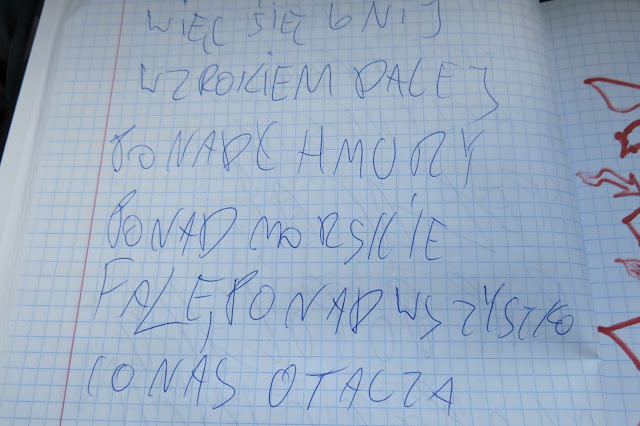 WIĘC SIĘGNIJ
WZROKIEM DALEJ
PONAD CHMURY
PONAD MORSKIE
FALE, PONAD WSZYSTKO
CO NAS OTACZA